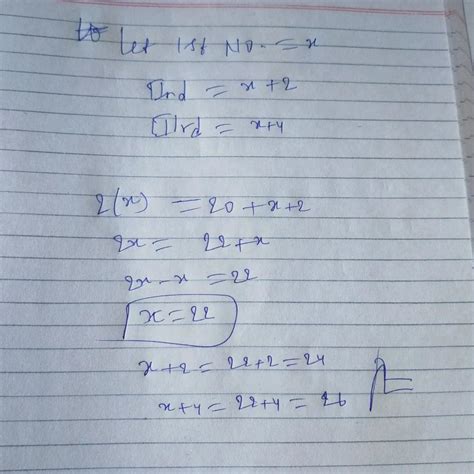 Let 1st No. = x
IInd = x+2
IIIrd = x+4
2(x) = 20+x+2
2x = 22+x
2x-x = 22
x = 22
x+2 = 22+2 = 24
x+4 = 22+4 = 26